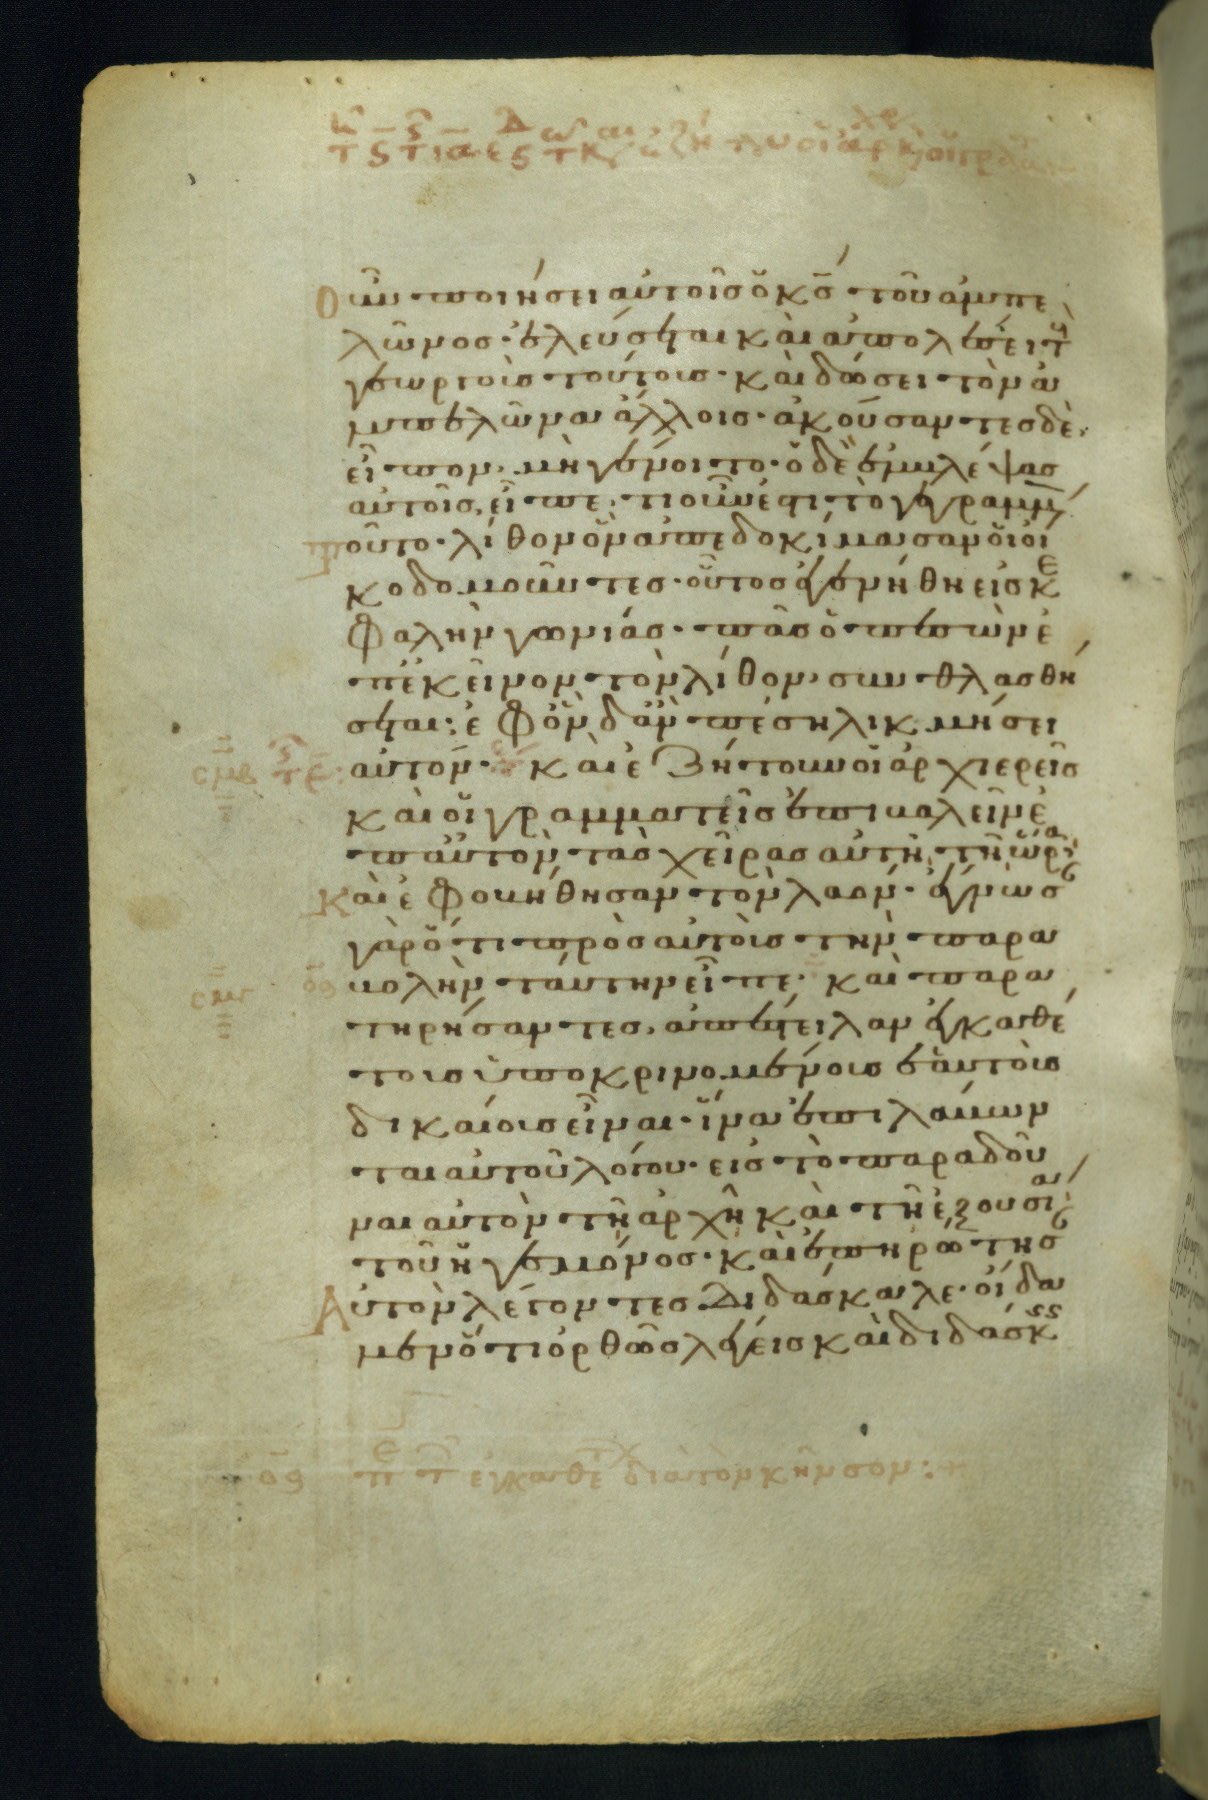 οὖν ποιήσει αὐτοῖς ὁ κς̄ τοῦ ἀμπε
λῶνος· ἐλεύσεται καὶ ἀπολέσει τ
γεωργοὺς τούτους· καὶ δώσει τὸν ἀ
μπελῶνα ἄλλοις· ἀκούσαντες δὲ
εἶπον· μὴ γένοιτο· ὁ δὲ ἐμβλέψας
αὐτοῖς, εἶπε· τί οὖν ἐστι τὸ γεγραμμ
τοῦτο· λίθον ὃν ἀπεδοκίμασαν οἱ οἰ
κοδομοῦντες· οὗτος ἐγενήθη εἰς κε
φαλὴν γωνίας· πᾶς ὁ πεσὼν ἐ
π' ἐκεῖνον τὸν λίθον, συνθλασθή
σεται· ἐφ' ὃν δ' ἂν πέσῃ λικμήσει
σμβ αὐτόν· καὶ ἐζήτουν οἱ ἀρχιερεῖς
καὶ οἱ γραμματεῖς ἐπιβαλεῖν ἐ
π' αὐτὸν τὰς χεῖρας αὐτῇ τῇ ὥρα
καὶ ἐφοβήθησαν τὸν λαόν· ἔγνως
γὰρ ὅτι πρὸς αὐτοὺς τὴν παρα
σμγ βολὴν ταύτην εἶπε· καὶ παρα
τηρήσαντες, ἀπέστειλαν ἐγκαθέ
τους ὑποκρινομένους ἑαυτοὺς
δικαίους εἶναι· ἵνα ἐπιλάβων
ται αὐτοῦ λόγου· εἰς τὸ παραδοῦ
ναι αὐτὸν τῇ ἀρχῇ καὶ τῇ ἐξουσία
τοῦ ἡγεμόνος· καὶ ἐπηρώτης
αὐτὸν λέγοντες· Διδάσκαλε· οἴδα
μεν ὅτι ὀρθῶς λέγεις καὶ διδάσκ
ἐγκαθε διὰ τὸν κῆνσον:+